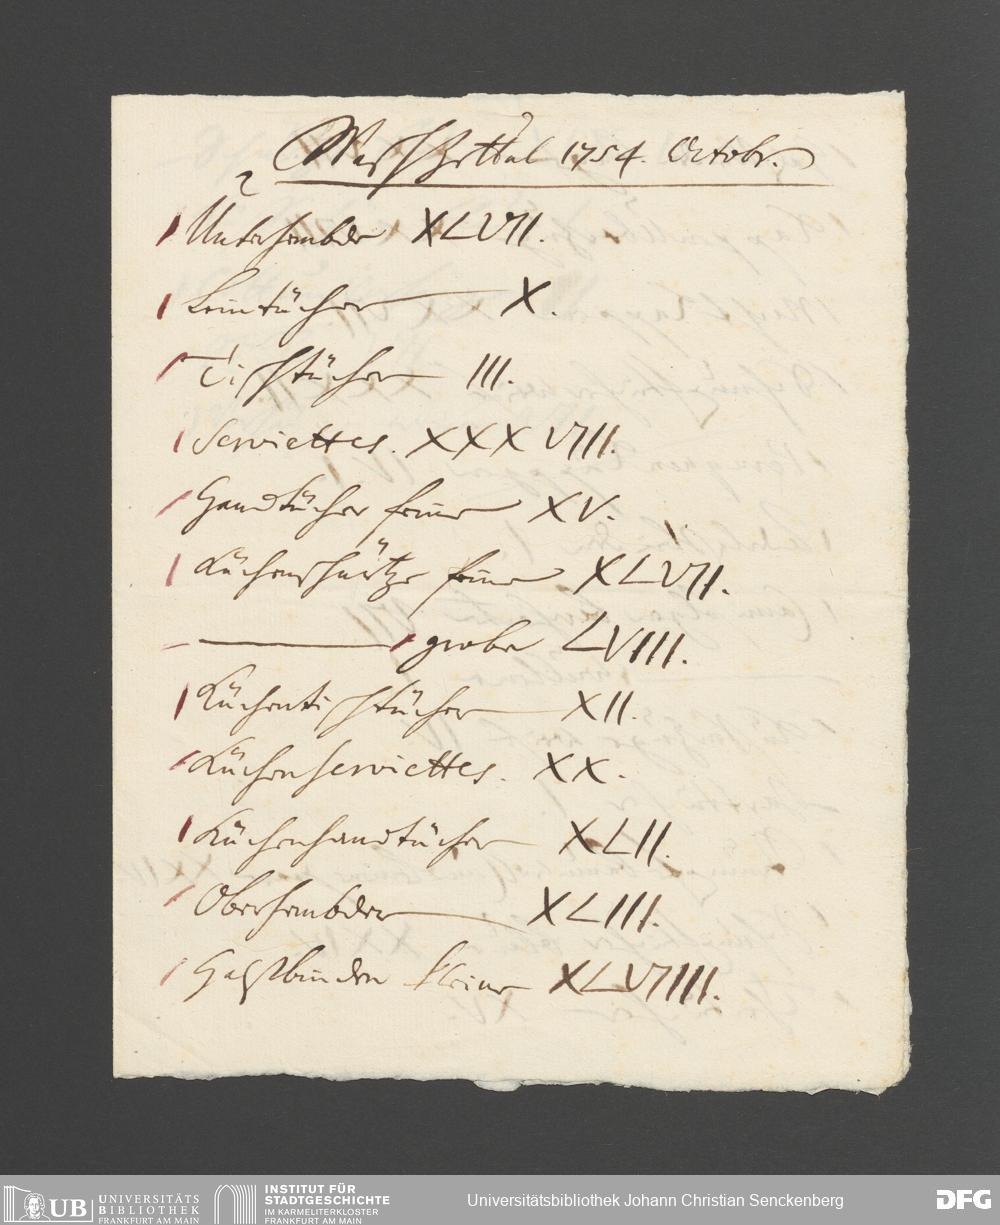 Waschzettel 1754. Octobr.
Unterhembder XLVII.
Leintücher X.
Tischtücher III.
Serviettes. XXXVIII.
Handtücher feine XV.
Küchenschürtze feine XLVII.
grobe LVIII.
Küchentischtücher XII.
Küchenserviettes. XX.
Küchenhandtücher XLII.
Oberhembder XLIII.
Halsbinden kleine XLVIIII.
UB UNIVERSITÄTS
BIBLIOTHEK
FRANKFURT AM MAIN
INSTITUT FÜR
STADTGESCHICHTE
IM KARMELITERKLOSTER
FRANKFURT AM MAIN
Universitätsbibliothek Johann Christian Senckenberg
DFG